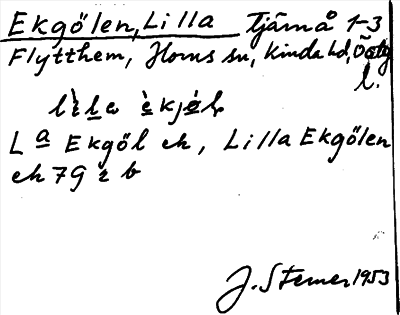 Ekgölen, Lilla Tjärnå 1-3
Flytthem, Horns sn, Kinda hd, Östg
l.
L a Ekgöl ek, Lilla Ekgölen
ek 7G r b
J. Sterner 1953